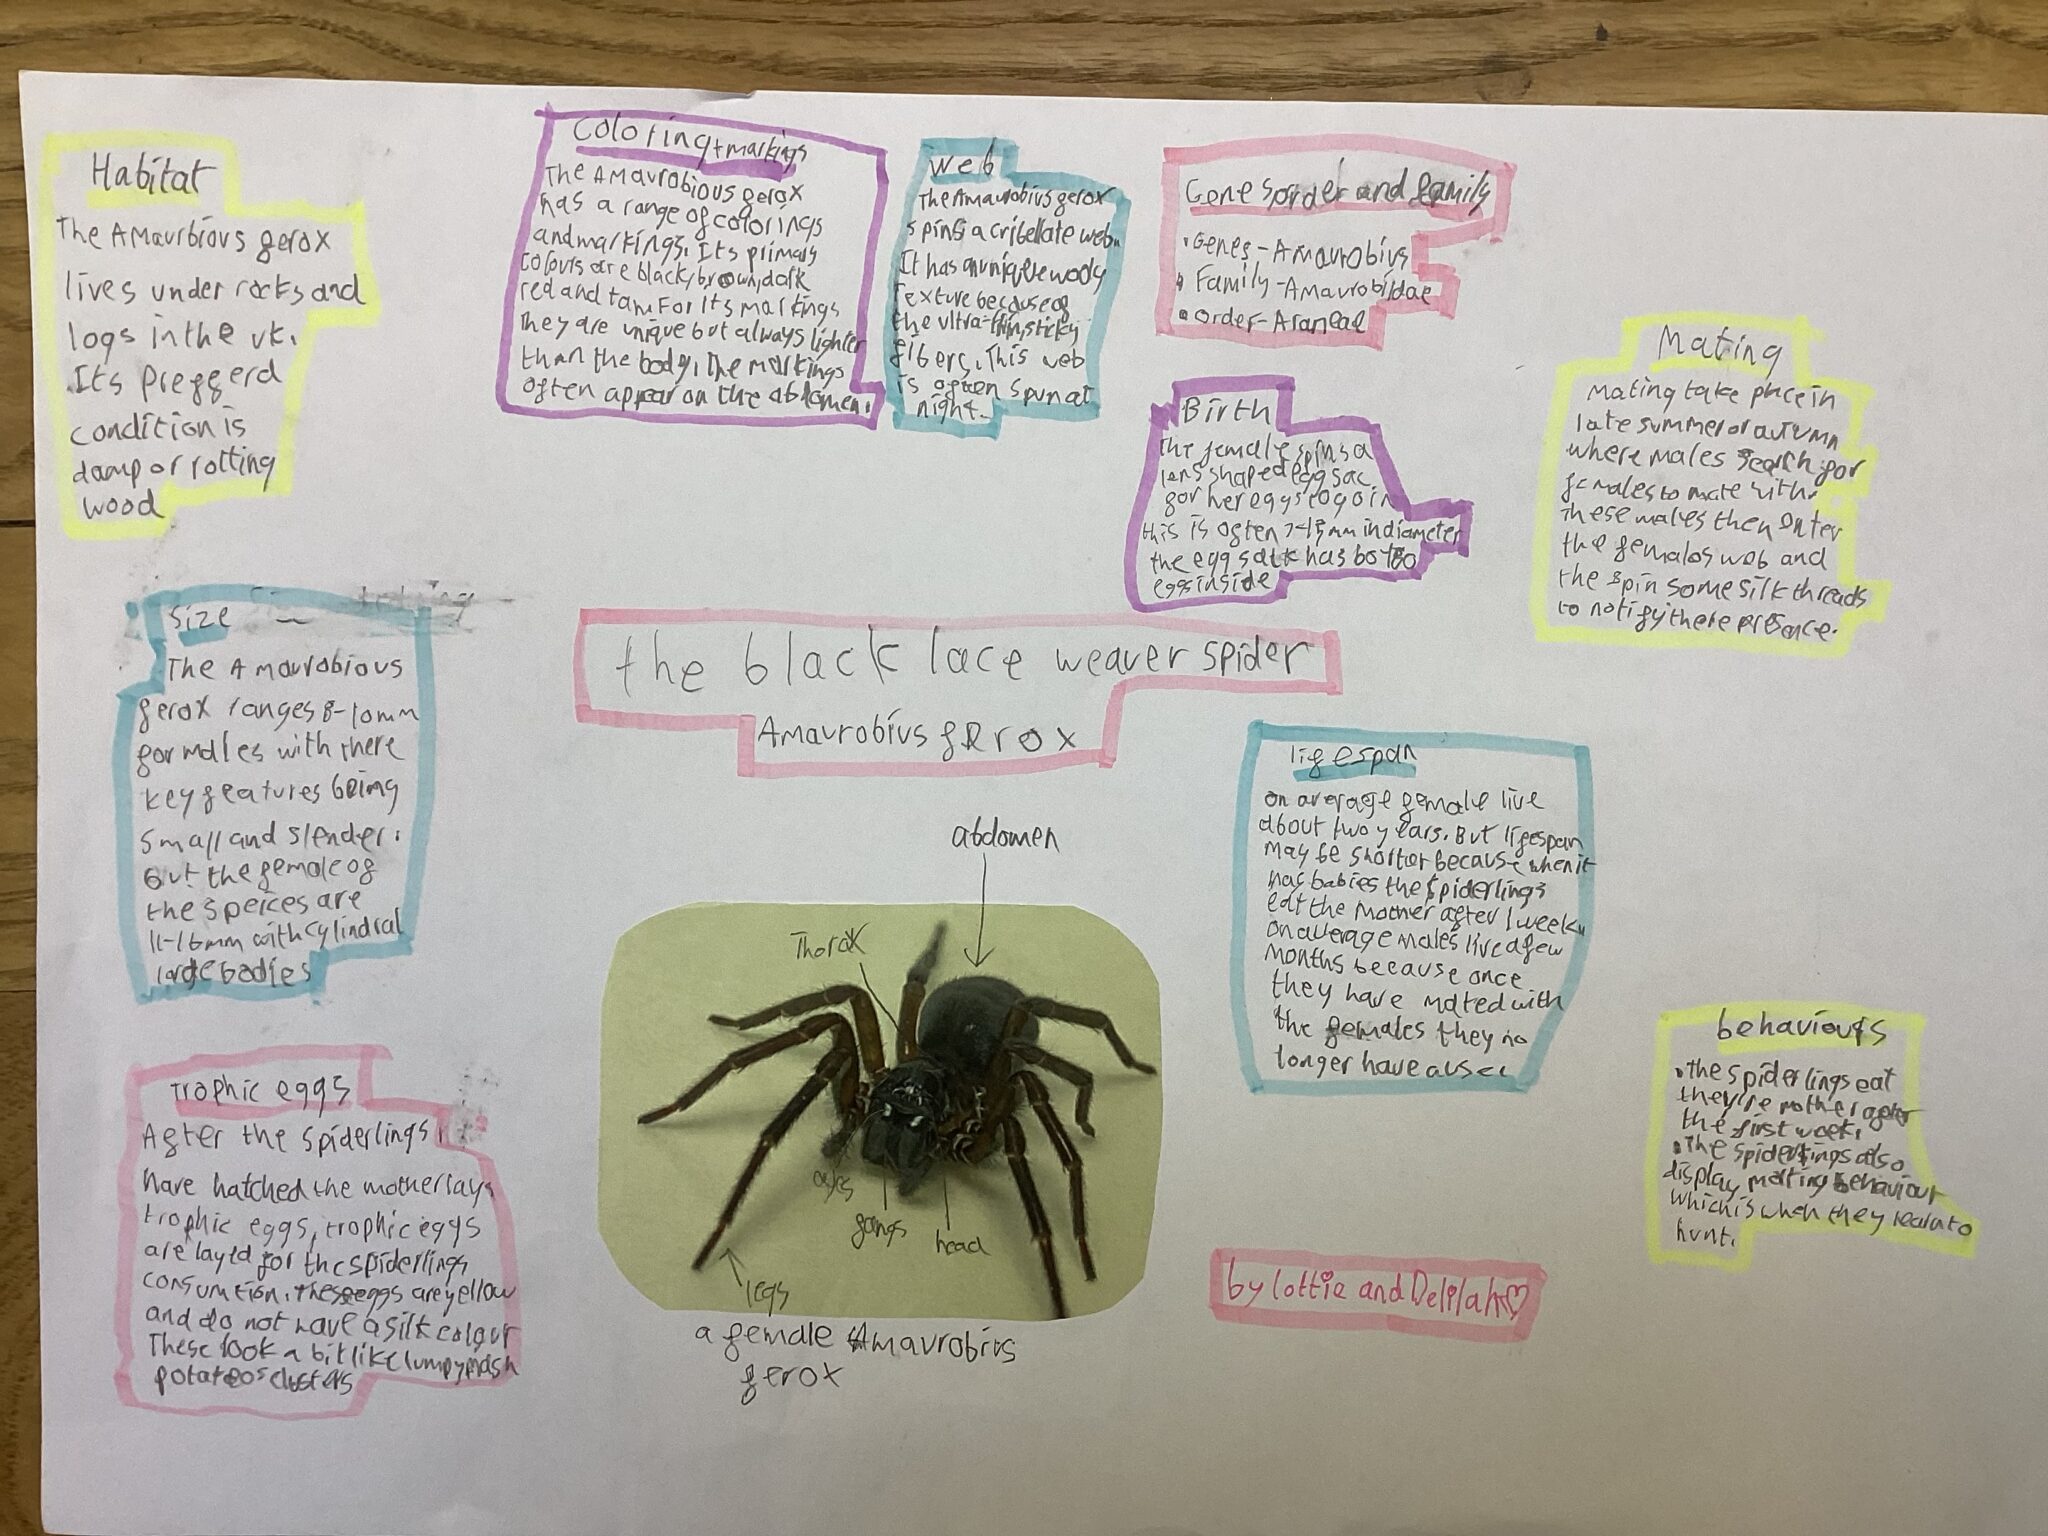 Habitat
The Amaurbious ferox
lives under rocks and
logs in the uk.
Its preggerd
condition is
damp or rotting
wood
Coloring + markings
The Amaurobious ferox
has a range of colorings
and markings. Its primary
colours are black, brown, dark
red and tam. For its markings
they are unique but always lighter
than the body, the markings
often appear on the abdomen.
Web
The Amaurobius ferox
spins a cribellate web.
It has a unique wooly
texture because of
the ultra-thin, sticky
fibers. This web
is often spun at
night.
Genes order and family
• Genes - Amaurobius
• Family - Amaurobidae
• Order - Araneae
Birth
The female spins a
lens shaped egg sac
for her eggs to go in
this is often 7-15mm in diameter
the egg sack has 60 to
eggs inside
Mating
Mating take place in
late summer or autumn
where males search for
females to mate with.
These males then enter
the females web and
the spin some silk threads
to notify there presence.
Size
The Amaurobious
ferox ranges 8-10mm
for males with there
key features being
small and slender.
But the female of
the speices are
11-16mm with cylindral
large bodies
the black lace weaver spider
Amaurobius ferox
lifespan
on average female live
about two years. But lifespan
may be shorter because when it
has babies the spiderlings
eat the mother after 1 week.
on average males live a few
months because once
they have mated with
the females they no
longer have a use
Trophic eggs
After the spiderlings
have hatched the mother lays
trophic eggs, trophic eggs
are layed for the spiderlings
consumtion. These eggs are yellow
and do not have a silk colour
These look a bit like lumpy mash
potatoe clusters
abdomen
Thorax
eyes
fangs
head
legs
a female Amaurobius
ferox
behaviours
• The spiderlings eat
they're mother after
the first week.
• The spiderlings also
display matting behaviour
which is when they learn to
hunt.
by Lottie and Delilah ♡